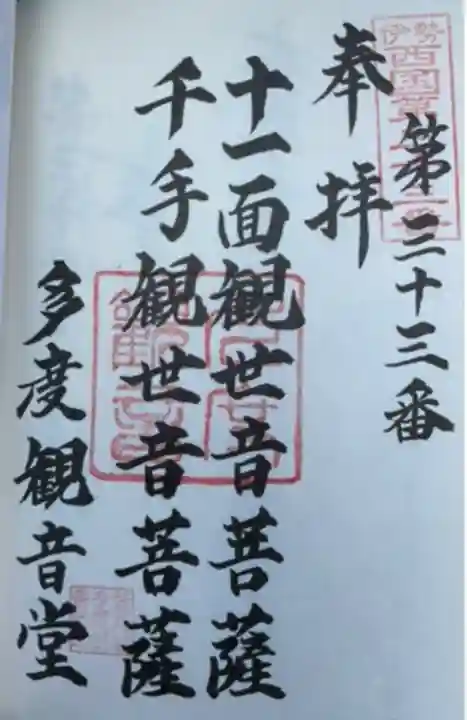 伊勢
西国第三十三番
第三十三番
奉拝
十一面観世音菩薩
千手観世音菩薩
多度観音堂